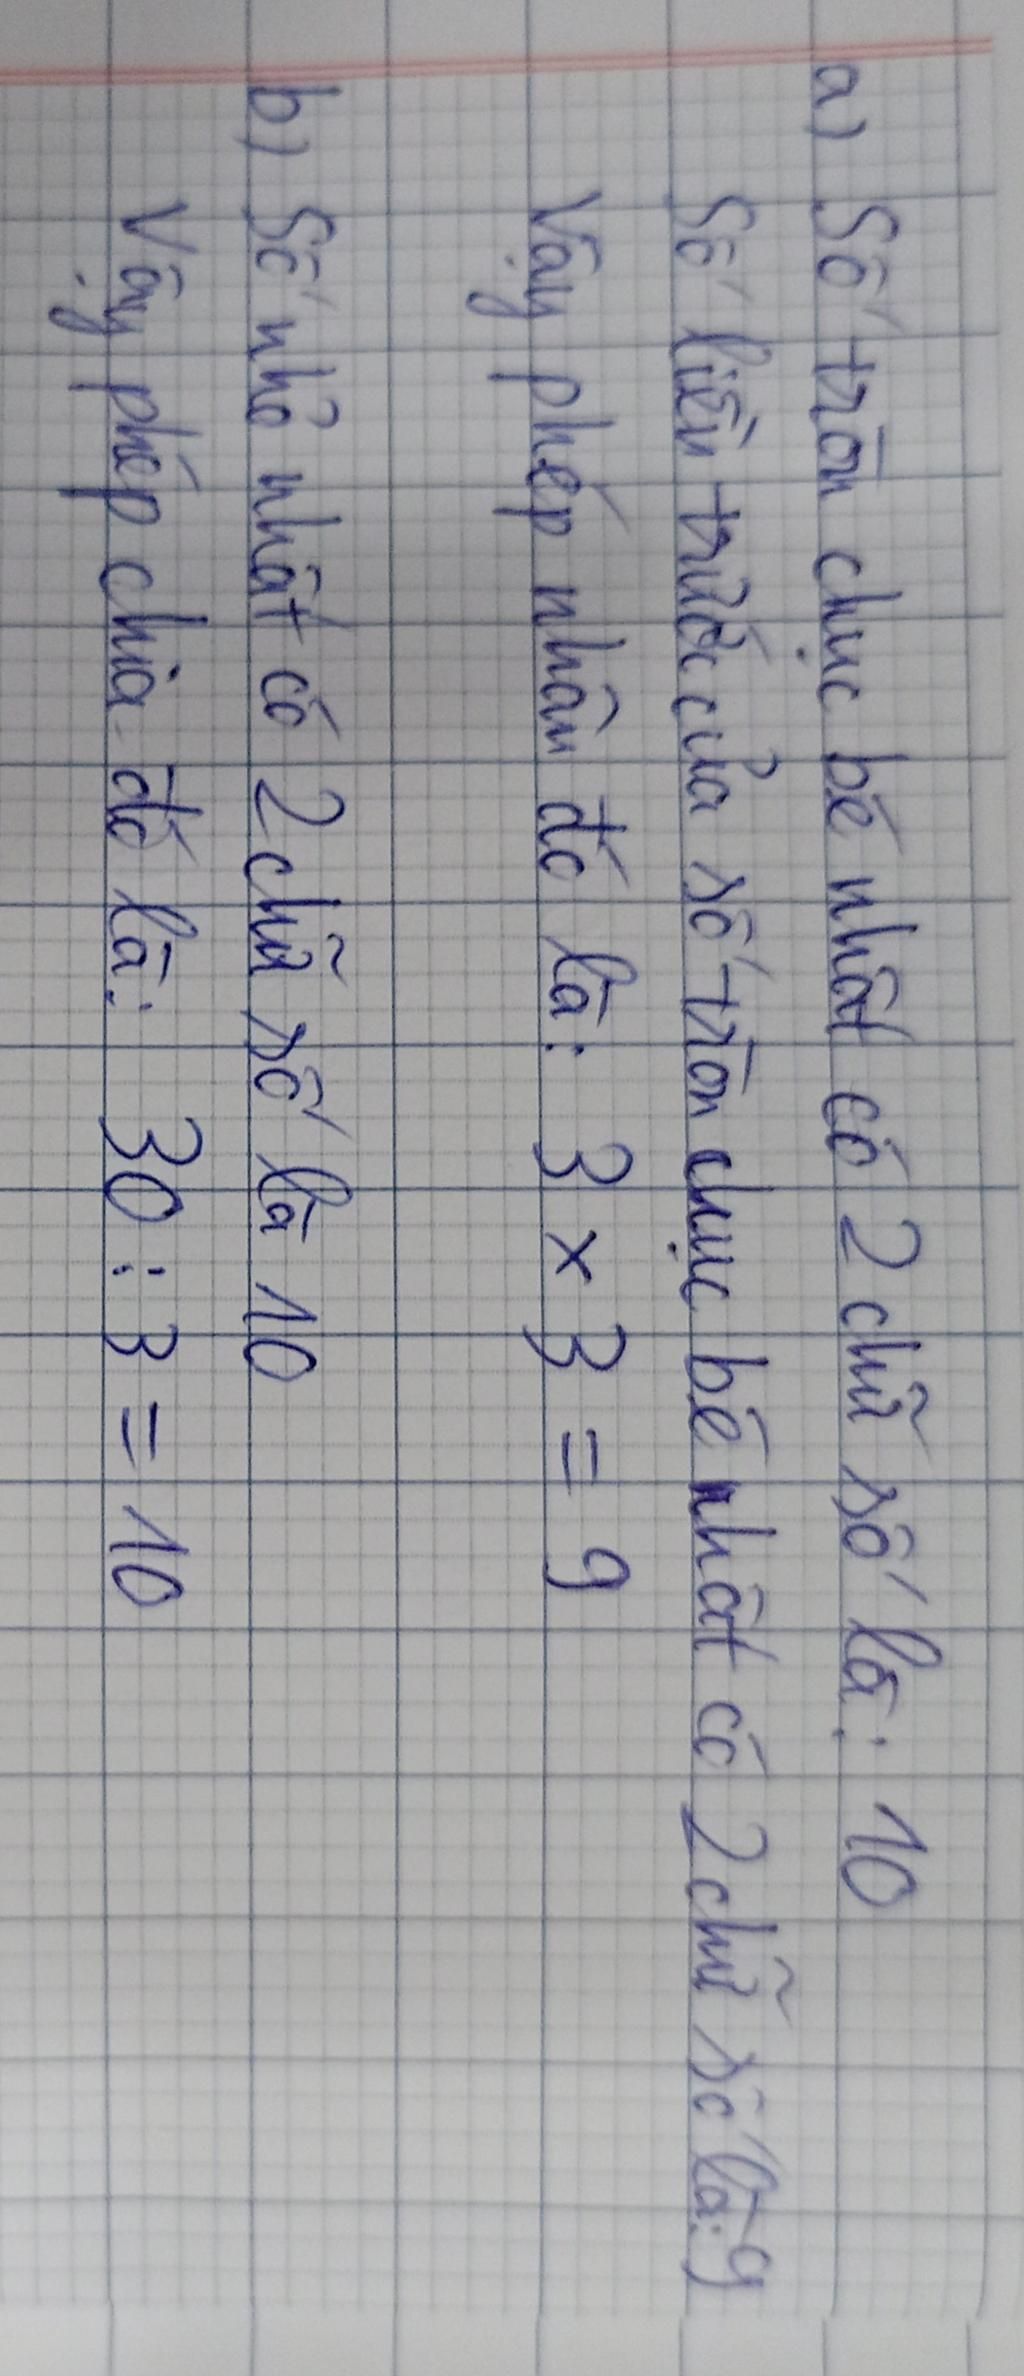 a) Số tròn chục bé nhất có 2 chữ số là: 10
Số liền trước của số tròn chục bé nhất có 2 chữ số là: 9
Vậy phép nhân đó là: 3 × 3 = 9
b) Số nhỏ nhất có 2 chữ số là 10
Vậy phép chia đó là: 30 : 3 = 10